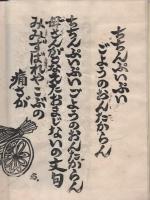 ちちんぷいぷい
ごようのおんたからん
ちちんぷいぷい
ごようのおんたからん
母さんがとなえたおまじないの文句
みみずばれやこぶの
痛さが